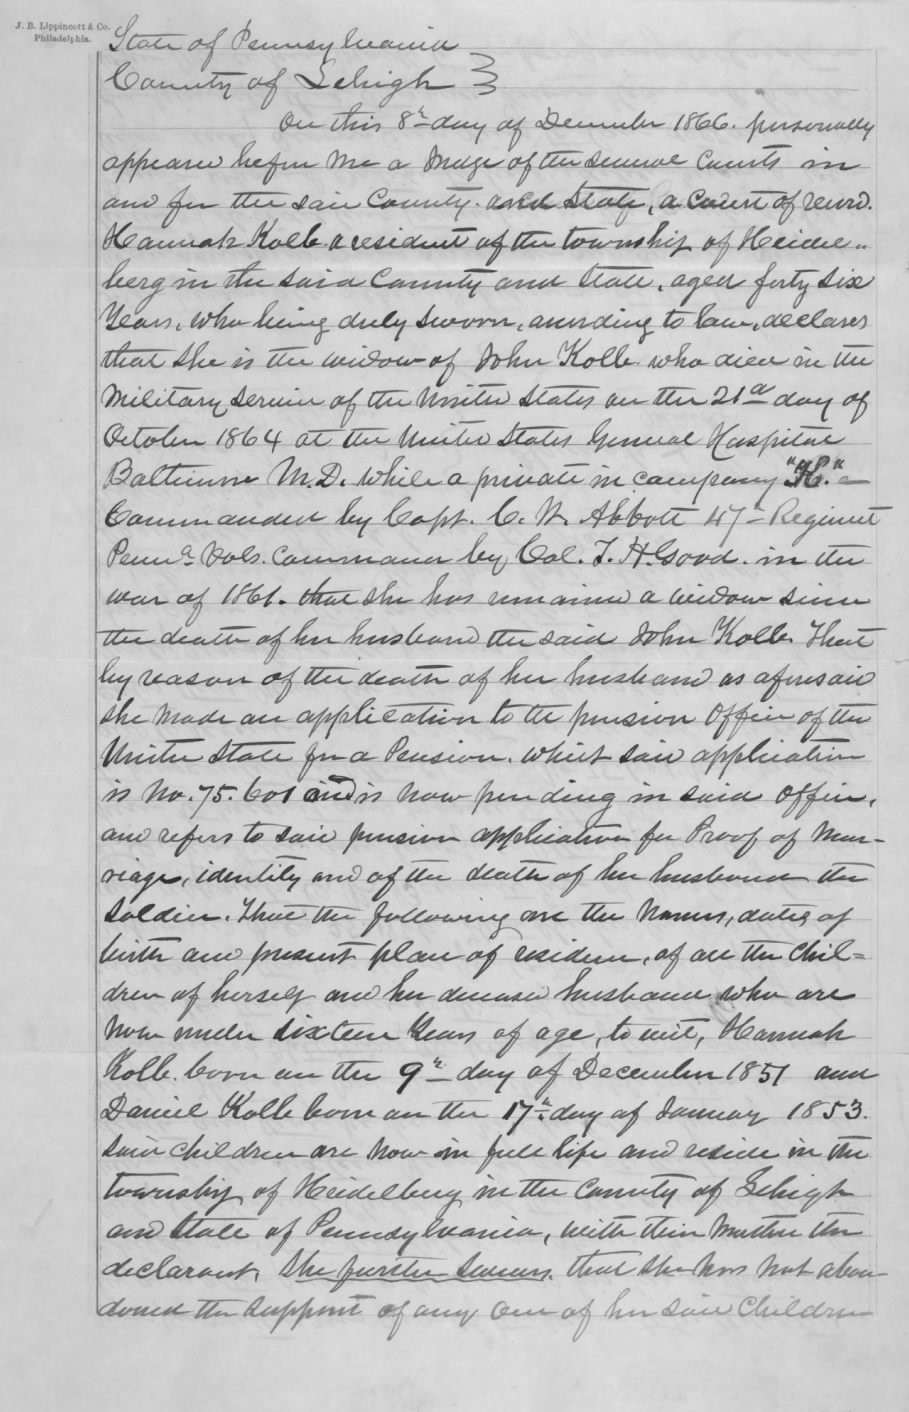 J. B. Lippincott & Co.
Philadelphia.
State of Pennsylvania
County of Lehigh }
On this 8th day of December 1866. personally
appeared before me a Judge of the several Courts in
and for the said County and State, a Court of record.
Hannah Kolb a resident of the township of Heidel-
berg in the said County and State, aged forty six
Years, who being duly sworn, according to law, declares
that she is the widow of John Kolb who died in the
Military Service of the United States on the 21st day of
October 1864 at the United States General Hospital
Baltimore M.D. while a private in company "H."
Commanded by Capt. C. W. Abbott 47th Regiment
Penna. Vols. Commanded by Col. T. H. Good. in the
war of 1861. that she has remained a widow since
the death of her husband the said John Kolb. That
by reason of the death of her husband as aforesaid
she made an application to the pension Office of the
United State for a Pension. which said application
is No. 75.601 and is now pending in said office,
and refers to said pension application for Proof of Mar-
riage, identity and of the death of her husband the
Soldier. That the following are the Names, dates of
birth and present place of residence, of all the Chil=
dren of herself and her deceased husband who are
Now under Sixteen Years of age, to wit, Hannah
Kolb. born on the 9th day of December 1851 and
Daniel Kolb born on the 17th day of January 1853.
said children are now in full life and reside in the
township of Heidelberg in the County of Lehigh
and State of Pennsylvania, with their Mother the
declarant, She further swears, that she has not aban-
doned the support of any one of her said Children